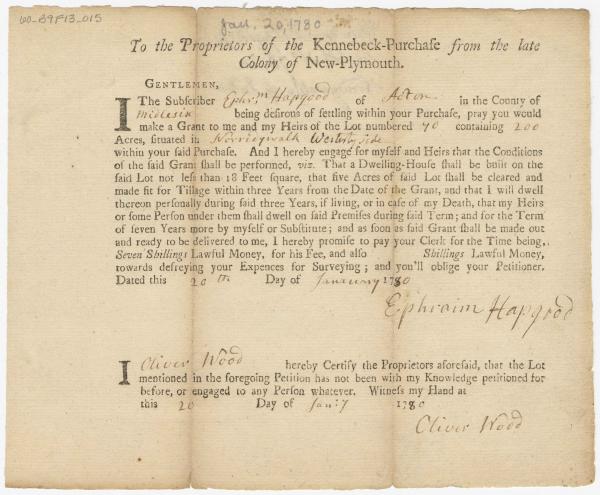 60-B9F13-015
Jan. 20, 1780
To the Proprietors of the Kennebeck-Purchaſe from the late
Colony of New-Plymouth.
GENTLEMEN,
I The Subſcriber Ephrm Hapgood of Acton in the County of
Middlesix being deſirous of ſettling within your Purchaſe, pray you would
make a Grant to me and my Heirs of the Lot numbered 70 containing 200
Acres, ſituated in Norridgwalk Westerly side
within your ſaid Purchaſe. And I hereby engage for myſelf and Heirs that the Conditions
of the ſaid Grant ſhall be performed, viz. That a Dwelling-Houſe ſhall be built on the
ſaid Lot not leſs than 18 Feet ſquare, that five Acres of ſaid Lot ſhall be cleared and
made fit for Tillage within three Years from the Date of the Grant, and that I will dwell
thereon perſonally during ſaid three Years, if living, or in caſe of my Death, that my Heirs
or ſome Perſon under them ſhall dwell on ſaid Premiſes during ſaid Term; and for the Term
of ſeven Years more by myſelf or Subſtitute; and as ſoon as ſaid Grant ſhall be made out
and ready to be delivered to me, I hereby promiſe to pay your Clerk for the Time being,
Seven Shillings Lawful Money, for his Fee, and alſo Shillings Lawful Money,
towards defreying your Expences for Surveying; and you'll oblige your Petitioner.
Dated this 20th Day of January 1780
Ephraim Hapgood
I Oliver Wood hereby Certify the Proprietors aforeſaid, that the Lot
mentioned in the foregoing Petition has not been with my Knowledge petitioned for
before, or engaged to any Perſon whatever. Witneſs my Hand at
this 20 Day of Jan:y 1780
Oliver Wood